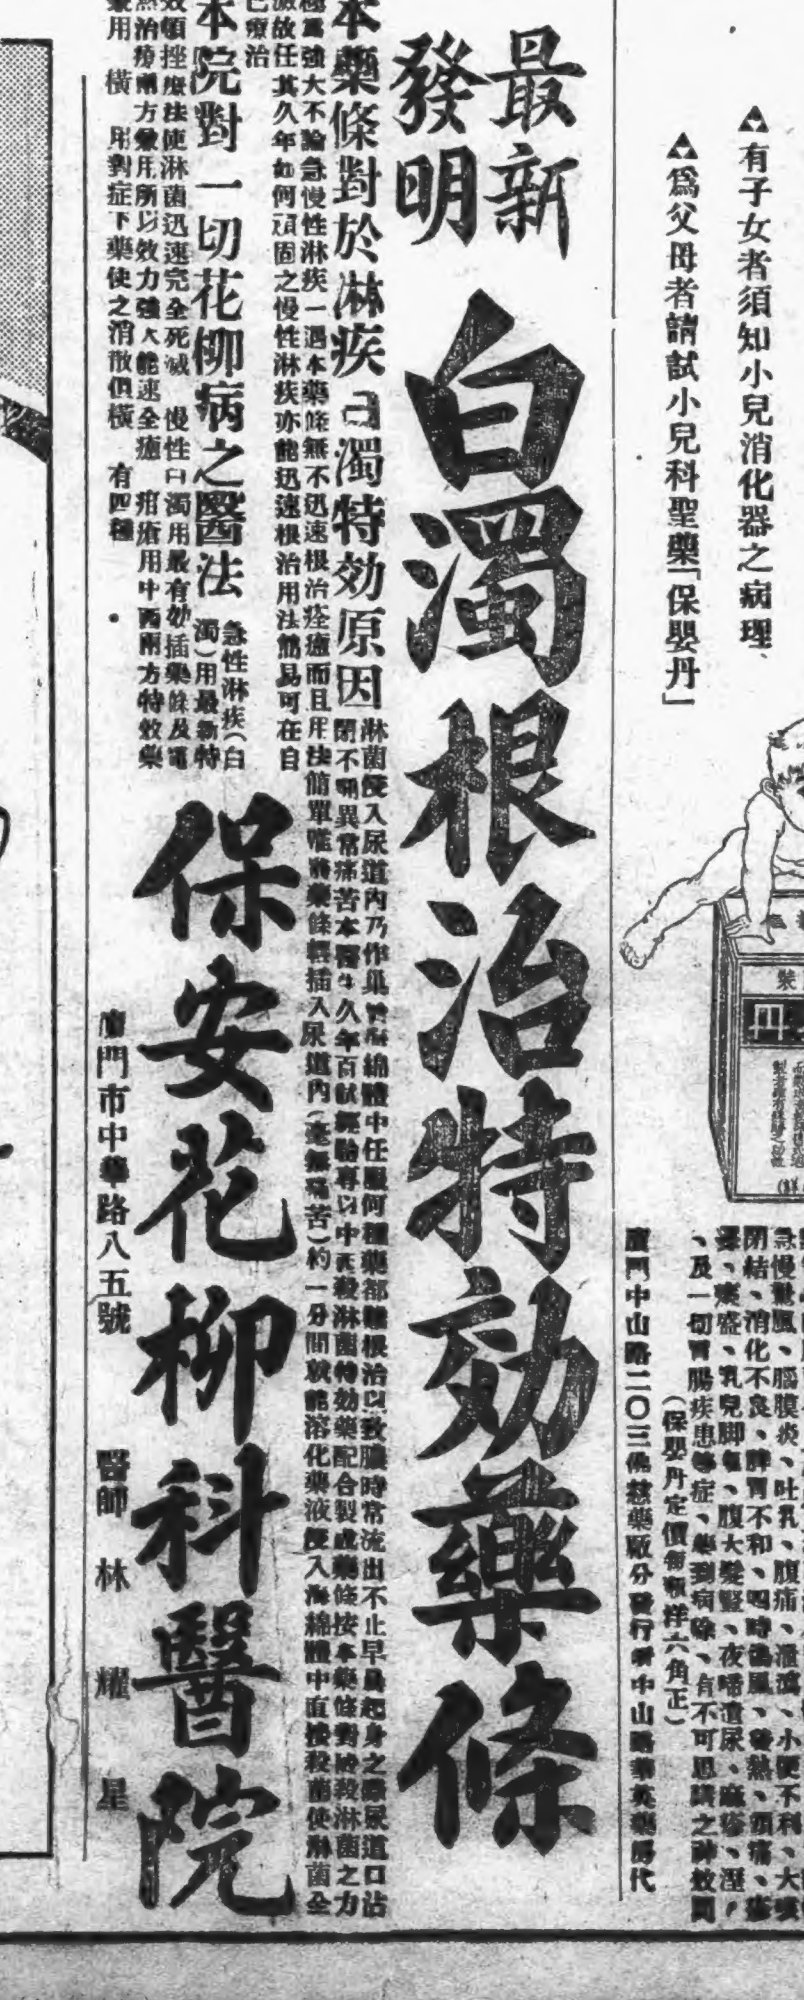 ▲有子女者須知小兒消化器之病理、
▲爲父母者請試小兒科聖藥「保嬰丹」
裝
丹
急慢驚風、腦膜炎、吐乳、腹痛、泄瀉、小便不利、大
閉結、消化不良、脾胃不和、四時傷風、發熱、頭痛、
痰盛、乳兒脚氣、腹大髮豎、夜啼遺尿、麻疹、溼
、及一切胃腸疾患等症、藥到病除、有不可思議之神效
(保嬰丹定價每瓶洋六角正)
廈門中山路二〇三佛慈藥廠分發行所中山路華英藥房代
最新
發明
白濁根治特効藥條
本藥條對於淋疾白濁特効原因
淋菌侵入尿道內乃作巢於海綿體中任服何種藥都難根治以致膿時常流出不止早晨起身之際尿道口沾
閉不開異常痛苦本醫生久年百試經驗專以中西殺淋菌特効藥配合製成藥條按本藥條對於殺淋菌之力
極爲強大不論急慢性淋疾一遇本藥條無不迅速根治痊癒而且用法簡單唯將藥條輕插入尿道內(毫無痛苦)約一分間就能溶化藥液侵入海綿體中直接殺菌使淋菌全
滅故任其久年如何頑固之慢性淋疾亦能迅速根治用法簡易可在自
己療治
本院對一切花柳病之醫法
急性淋疾(白
濁)用最新特
效頓挫療法使淋菌迅速完全死滅 慢性白濁用最有効插藥條及電
熱治療兩方兼用所以效力強大能速全癒 疳瘡用中西兩方特效藥
兼用 橫 用對症下藥使之消散但橫 有四種
保安花柳科醫院
廈門市中華路八五號
醫師 林 耀 星